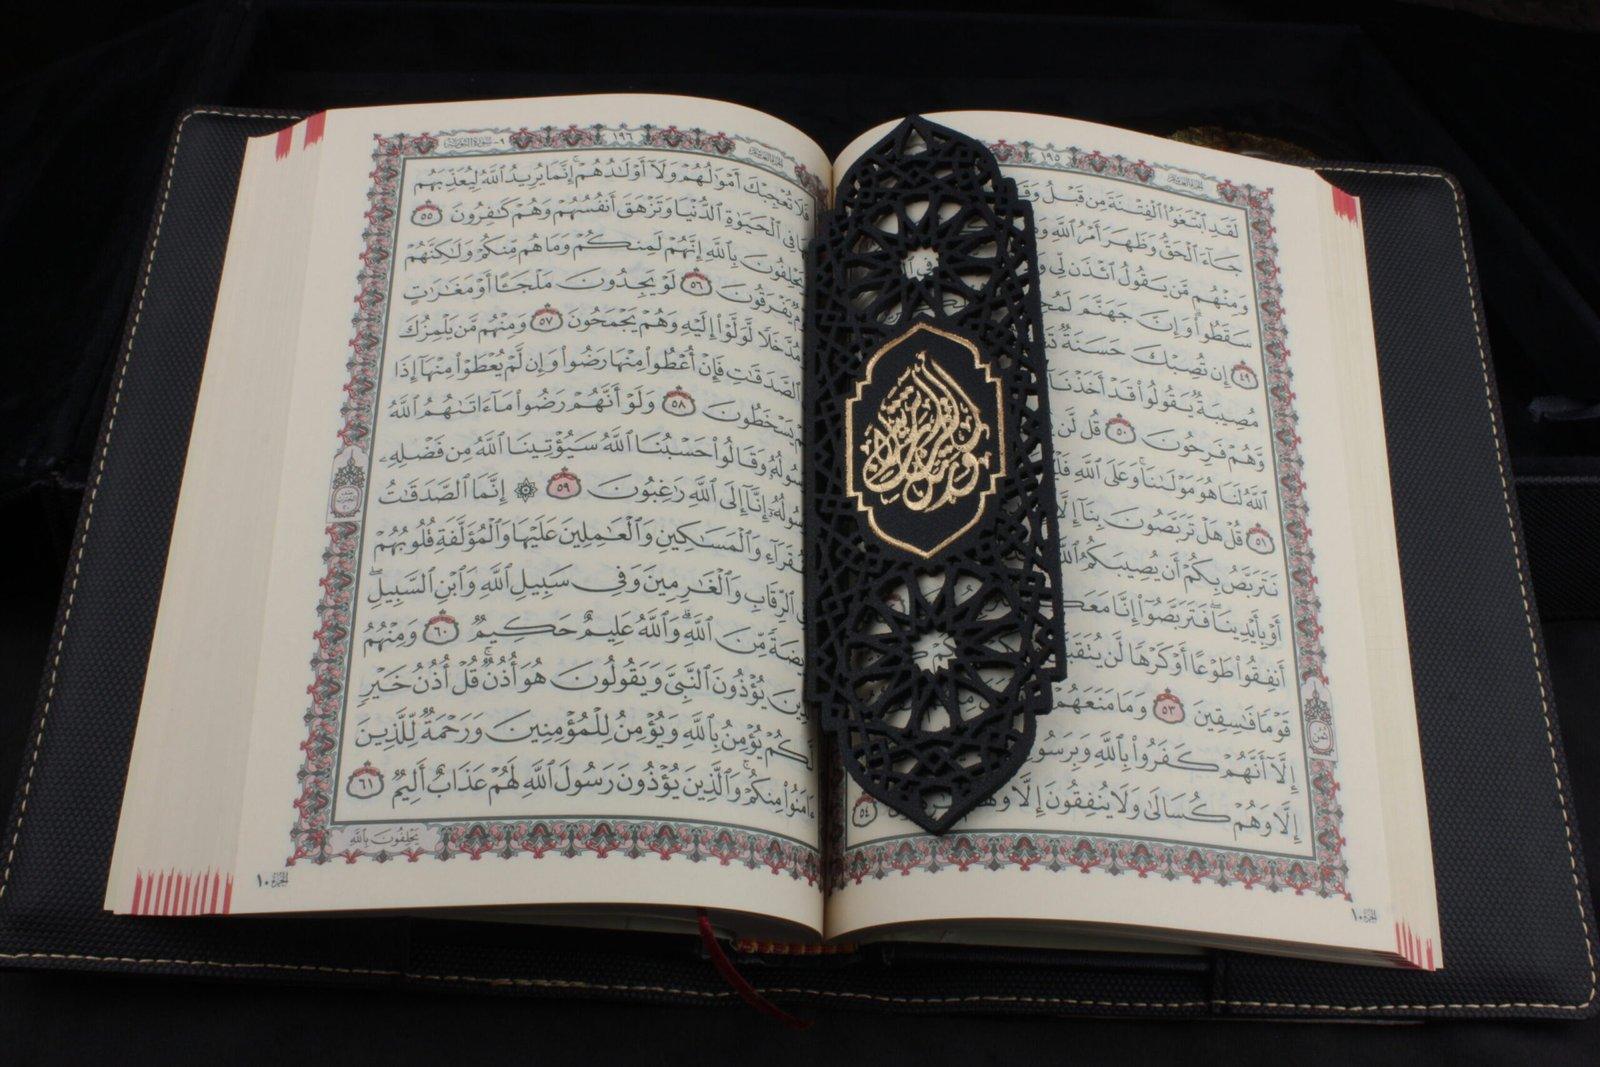 الجزء العاشر
١٩٥
لَقَدِ ٱبْتَغَوُا۟ ٱلْفِتْنَةَ مِن قَبْلُ
جَآءَ ٱلْحَقُّ وَظَهَرَ أَمْرُ ٱللَّهِ
وَمِنْهُم مَّن يَقُولُ ٱئْذَن لِّى
سَقَطُوا۟ ۗ وَإِنَّ جَهَنَّمَ
٤٩ إِن تُصِبْكَ حَسَنَةٌ
مُصِيبَةٌ يَقُولُوا۟ قَدْ أَخَذْنَآ
وَّهُمْ فَرِحُونَ ٥٠ قُل لَّن
ٱللَّهُ لَنَا هُوَ مَوْلَىٰنَا ۚ وَعَلَى ٱللَّهِ
٥١ قُلْ هَلْ تَرَبَّصُونَ بِنَآ إِلَّآ
نَتَرَبَّصُ بِكُمْ أَن يُصِيبَكُمُ ٱللَّهُ
أَوْ بِأَيْدِينَا ۖ فَتَرَبَّصُوٓا۟ إِنَّا
أَنفِقُوا۟ طَوْعًا أَوْ كَرْهًا لَّن
قَوْمًا فَٰسِقِينَ ٥٣ وَمَا مَنَعَهُمْ
إِلَّآ أَنَّهُمْ كَفَرُوا۟ بِٱللَّهِ
إِلَّا وَهُمْ كُسَالَىٰ وَلَا يُنفِقُونَ إِلَّا وَهُمْ ٥٤
ثمن
الجزء ١٠
الجزء العاشر
١٩٦
٩ - سورة التوبة
فَلَا تُعْجِبْكَ أَمْوَٰلُهُمْ وَلَآ أَوْلَٰدُهُمْ ۚ إِنَّمَا يُرِيدُ ٱللَّهُ لِيُعَذِّبَهُم
بِهَا فِى ٱلْحَيَوٰةِ ٱلدُّنْيَا وَتَزْهَقَ أَنفُسُهُمْ وَهُمْ كَٰفِرُونَ ٥٥
وَيَحْلِفُونَ بِٱللَّهِ إِنَّهُمْ لَمِنكُمْ وَمَا هُم مِّنكُمْ وَلَٰكِنَّهُمْ
قَوْمٌ يَفْرَقُونَ ٥٦ لَوْ يَجِدُونَ مَلْجَـًٔا أَوْ مَغَٰرَٰتٍ
أَوْ مُدَّخَلًا لَّوَلَّوْا۟ إِلَيْهِ وَهُمْ يَجْمَحُونَ ٥٧ وَمِنْهُم مَّن يَلْمِزُكَ
فِى ٱلصَّدَقَٰتِ فَإِنْ أُعْطُوا۟ مِنْهَا رَضُوا۟ وَإِن لَّمْ يُعْطَوْا۟ مِنْهَآ إِذَا
هُمْ يَسْخَطُونَ ٥٨ وَلَوْ أَنَّهُمْ رَضُوا۟ مَآ ءَاتَىٰهُمُ ٱللَّهُ
وَرَسُولُهُۥ وَقَالُوا۟ حَسْبُنَا ٱللَّهُ سَيُؤْتِينَا ٱللَّهُ مِن فَضْلِهِۦ
وَرَسُولُهُۥٓ إِنَّآ إِلَى ٱللَّهِ رَٰغِبُونَ ٥٩ ۞ إِنَّمَا ٱلصَّدَقَٰتُ
لِلْفُقَرَآءِ وَٱلْمَسَٰكِينِ وَٱلْعَٰمِلِينَ عَلَيْهَا وَٱلْمُؤَلَّفَةِ قُلُوبُهُمْ
وَفِى ٱلرِّقَابِ وَٱلْغَٰرِمِينَ وَفِى سَبِيلِ ٱللَّهِ وَٱبْنِ ٱلسَّبِيلِ ۖ
فَرِيضَةً مِّنَ ٱللَّهِ ۗ وَٱللَّهُ عَلِيمٌ حَكِيمٌ ٦٠ وَمِنْهُمُ
ٱلَّذِينَ يُؤْذُونَ ٱلنَّبِىَّ وَيَقُولُونَ هُوَ أُذُنٌ ۚ قُلْ أُذُنُ خَيْرٍ
لَّكُمْ يُؤْمِنُ بِٱللَّهِ وَيُؤْمِنُ لِلْمُؤْمِنِينَ وَرَحْمَةٌ لِّلَّذِينَ
ءَامَنُوا۟ مِنكُمْ ۚ وَٱلَّذِينَ يُؤْذُونَ رَسُولَ ٱللَّهِ لَهُمْ عَذَابٌ أَلِيمٌ ٦١
يَحْلِفُونَ بِٱللَّهِ
الجزء ١٠